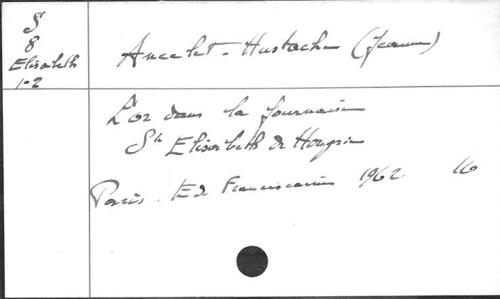 S
8
Elisabeth
1-2
Ancelet-Hustache (Jeanne)
L'or dans la fournaise
Ste Elisabeth de Hongrie
Paris. Ed. Franciscaines 1962. 16